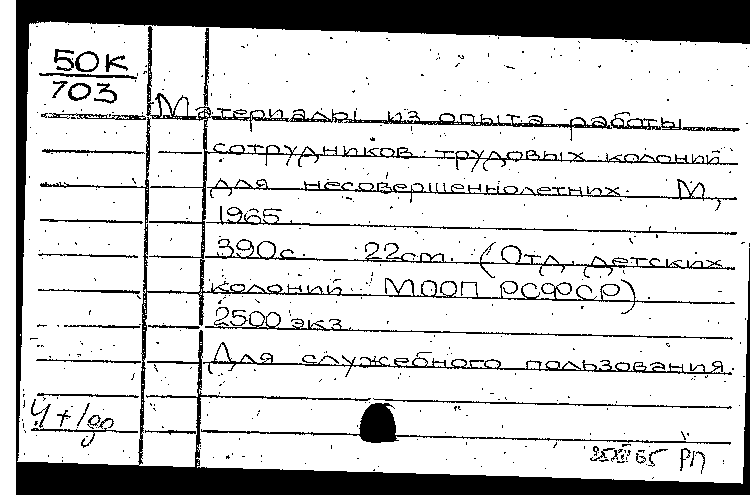 50К
703
Материалы из опыта работы
сотрудников трудовых колоний
для несовершеннолетних. М.,
1965.
390с. 22см. (Отд. детских
колоний МООП РСФСР).
2500 экз.
Для служебного пользования.
65 РП